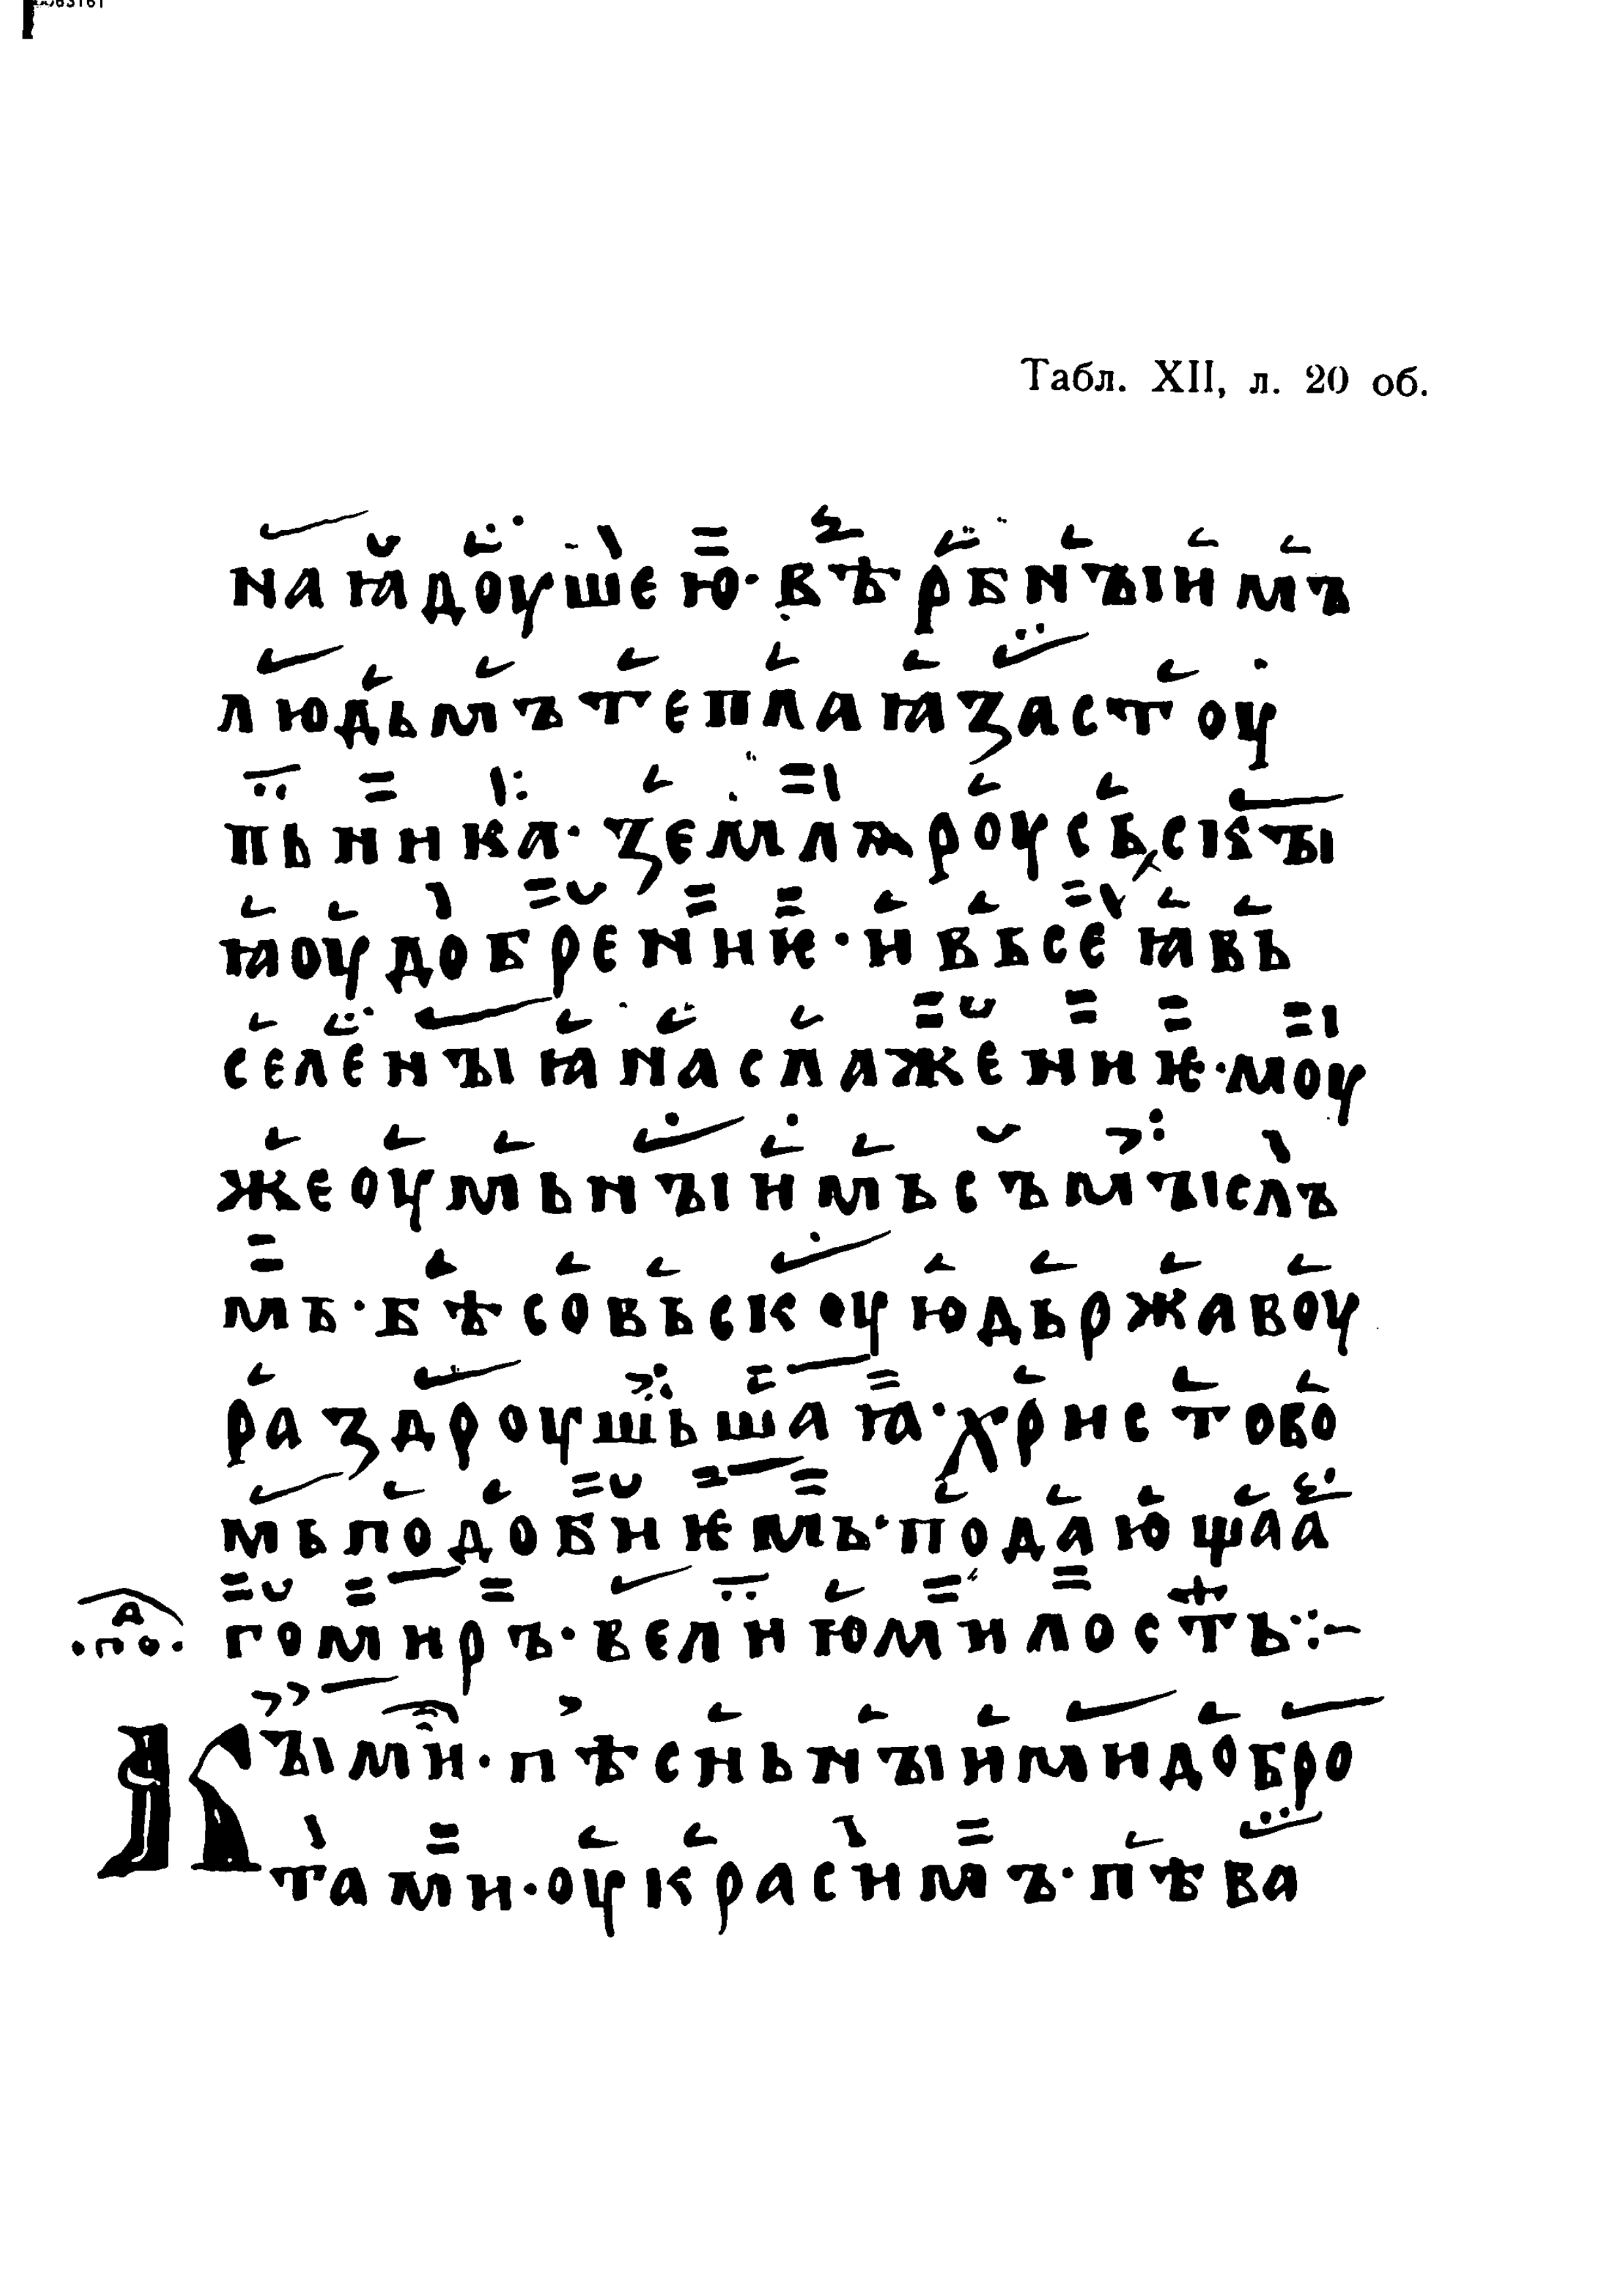 Табл. XII, л. 20 об.
наꙗдоушею·вѣрьнъіимъ
людьмътеплаꙗзастоу
пьника·землѧроусьскъі
ꙗоудобрениѥ·ивьсеꙗвъ
селенъіꙗнаслажениѥ·моу
жеоумьнъіимьсъмъісль
мь·бѣсовьскоуюдьржавоу
раздроушьшаꙗ·христово
мьподобиѥмь·подающаа
гомиръ·велиюмилость⁘~
Къіми·пѣсньнъіимидобро
тами·оукрасимъ·пѣва